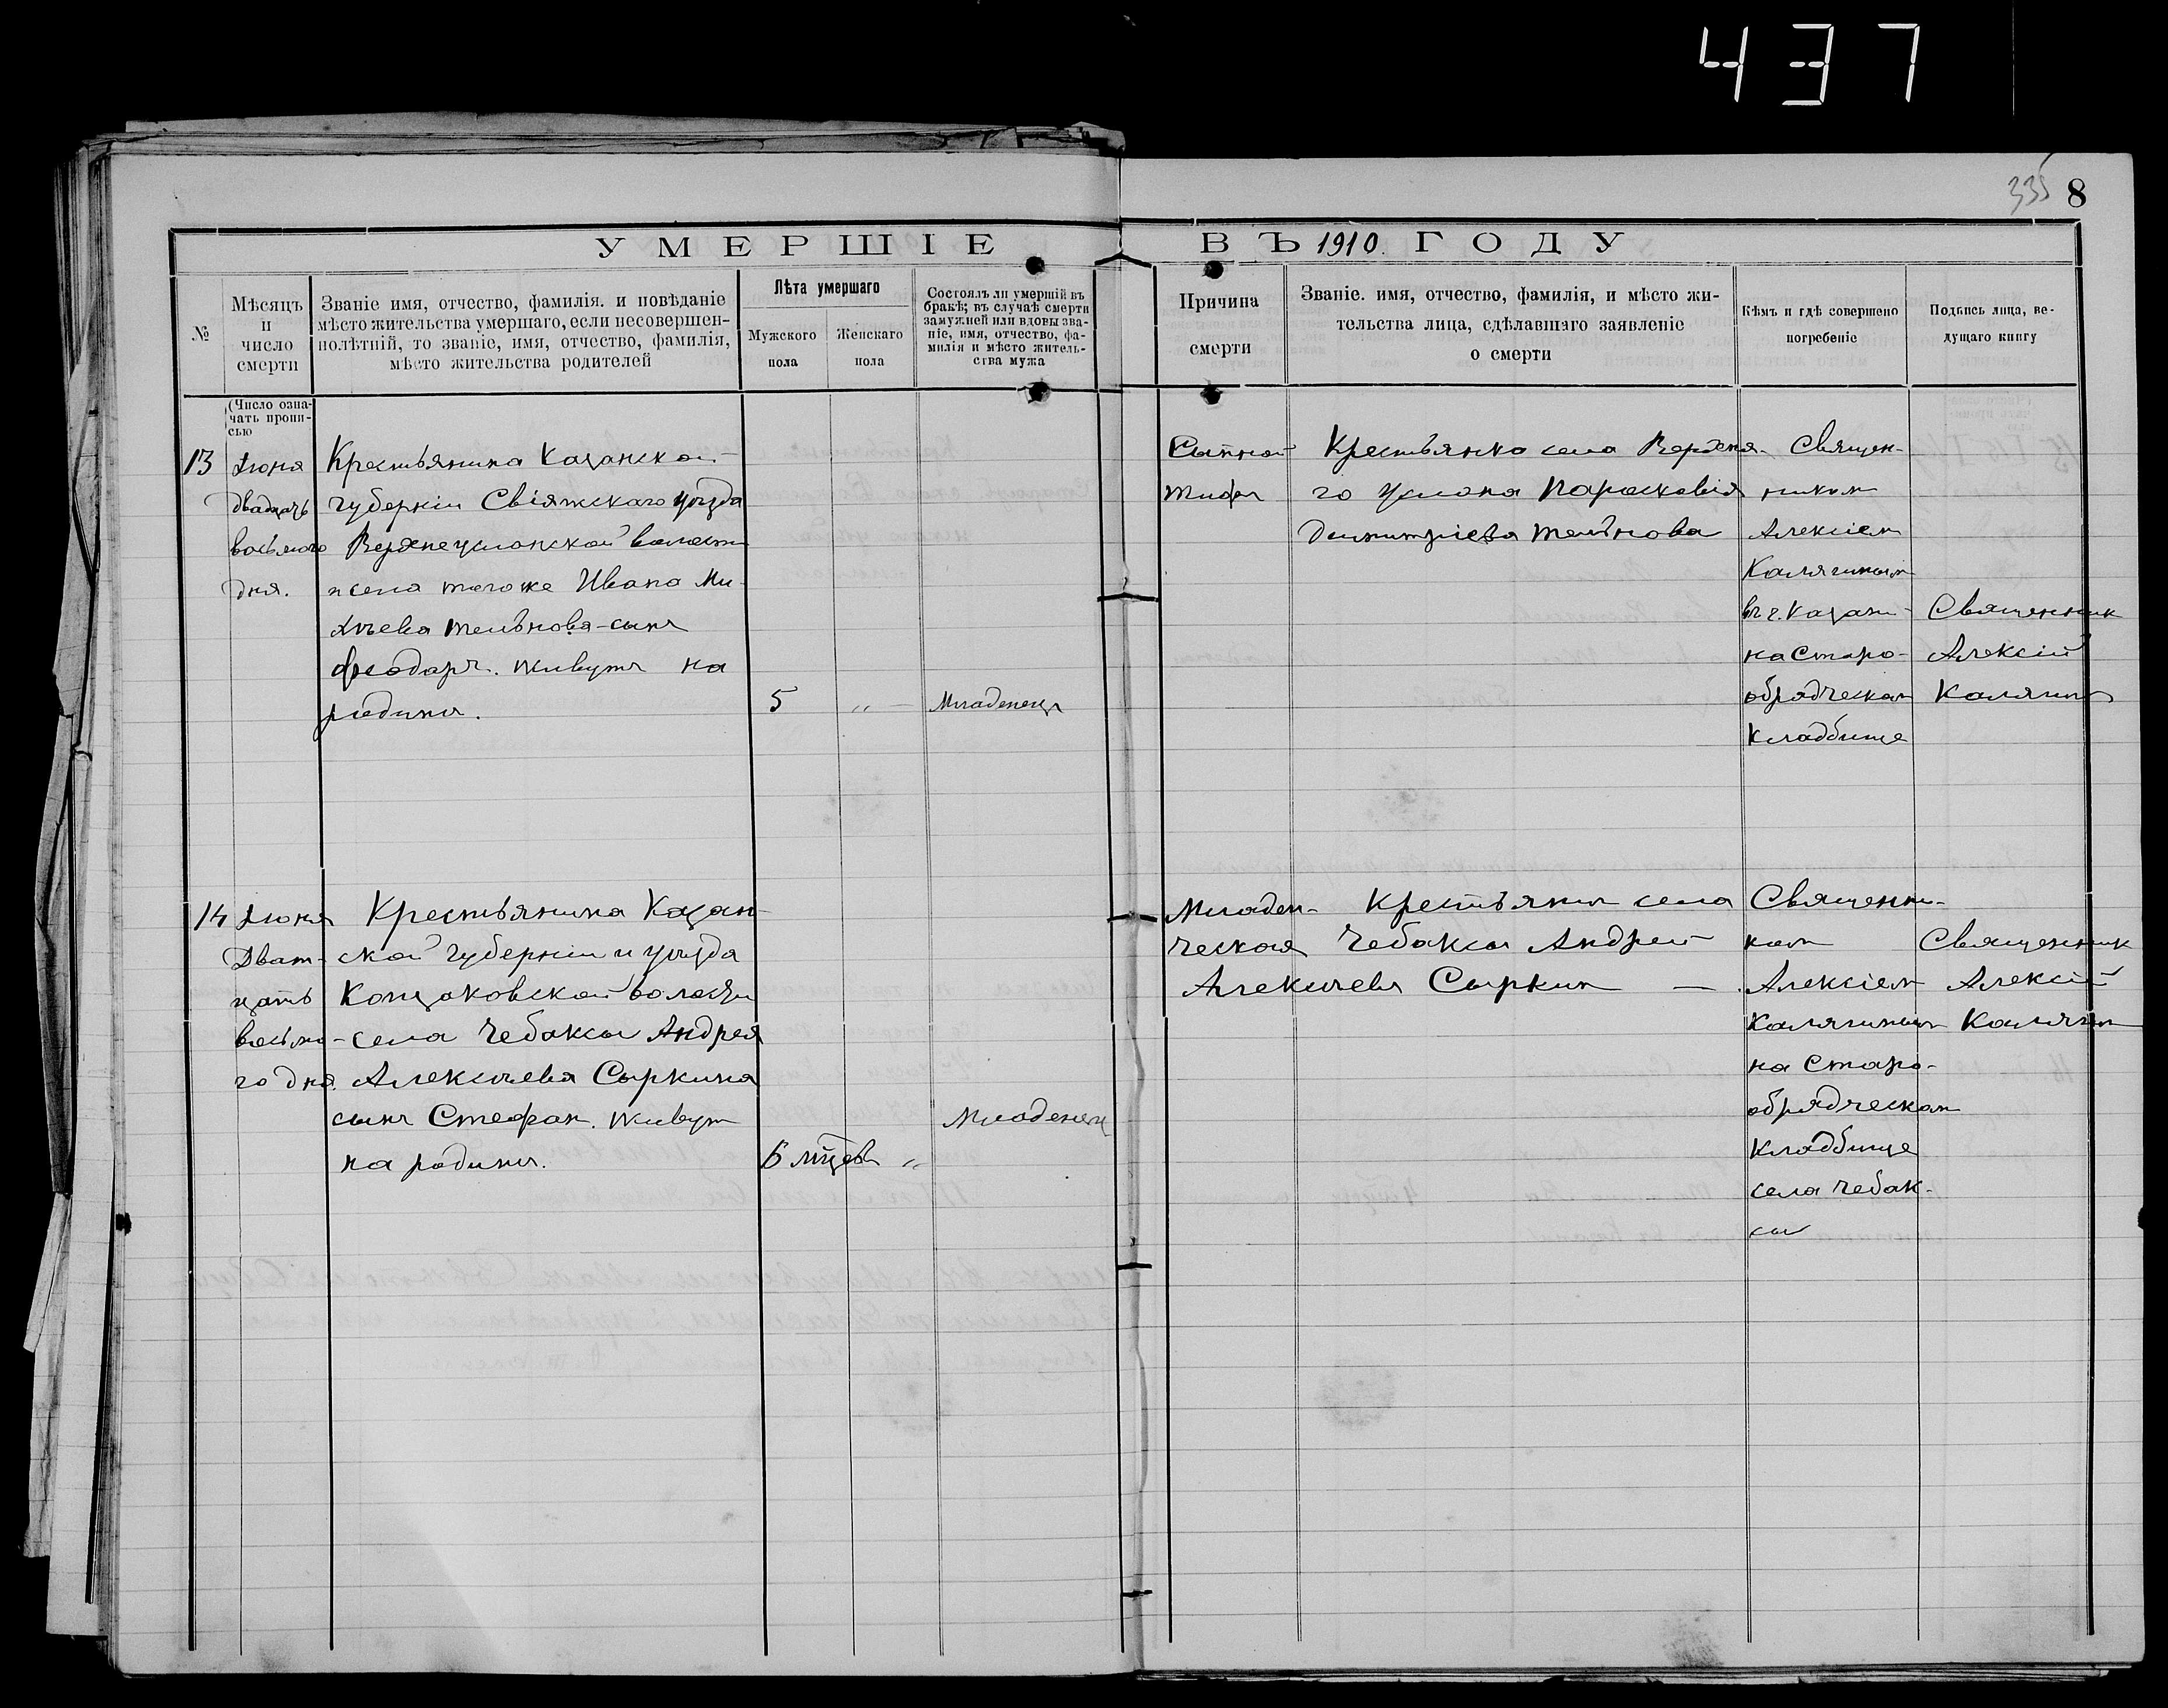 437
335 8
УМЕРШІЕ ВЪ 1910 ГОДУ
№
Мѣсяцъ
и
число
смерти
Званіе имя, отчество, фамилія. и повѣданіе
мѣсто жительства умершаго, если несовершен-
нолѣтній, то званіе, имя, отчество, фамилія,
мѣсто жительства родителей
Лѣта умершаго
Мужского
пола
Женскаго
пола
Состоялъ ли умершій въ
бракѣ; въ случаѣ смерти
замужней или вдовы зва-
ніе, имя, отчество, фа-
милія и мѣсто житель-
ства мужа
Причина
смерти
Званіе. имя, отчество, фамилія, и мѣсто жи-
тельства лица, сдѣлавшаго заявленіе
о смерти
Кѣмъ и гдѣ совершено
погребеніе
Подпись лица, ве-
дущаго книгу
(Число озна-
чать пропи-
сью
13
Іюня
двадцать
восьмого
дня.
Крестьянина Казанской
губерніи Свіяжскаго уѣзда
Верхнеуслонской волости
и села тогоже Ивана Ми-
хѣева Тельнова-сынъ
Феодоръ. Живутъ на
родинѣ.
5
"
Младенецъ
Сыпной
тифъ
Крестьянка села Верхня-
го Услона Параскевія
Димитріева Тельнова
Священ-
никомъ
Алексіем
Калягинымъ
въ г. Казани
на Старо-
обрядческом
Кладбище
Священник
Алексій
Калягинъ
14
Іюня
Дват-
цать
восьмо-
го дня.
Крестьянина Казан-
ской губерніи и уѣзда
Кощаковской волости
села Чебаксы Андрея
Алексѣева Сыркина
сынъ Стефан. Живут
на родинѣ.
6 мцевъ "
Младенецъ
Младен-
ческая
Крестьянинъ села
Чебаксы Андрей
Алексѣевъ Сыркин —
Священни-
ком
Алексіем
Калягиным
на Старо-
обрядческом
Кладбище
села Чебак-
сы
Священник
Алексій
Калягин